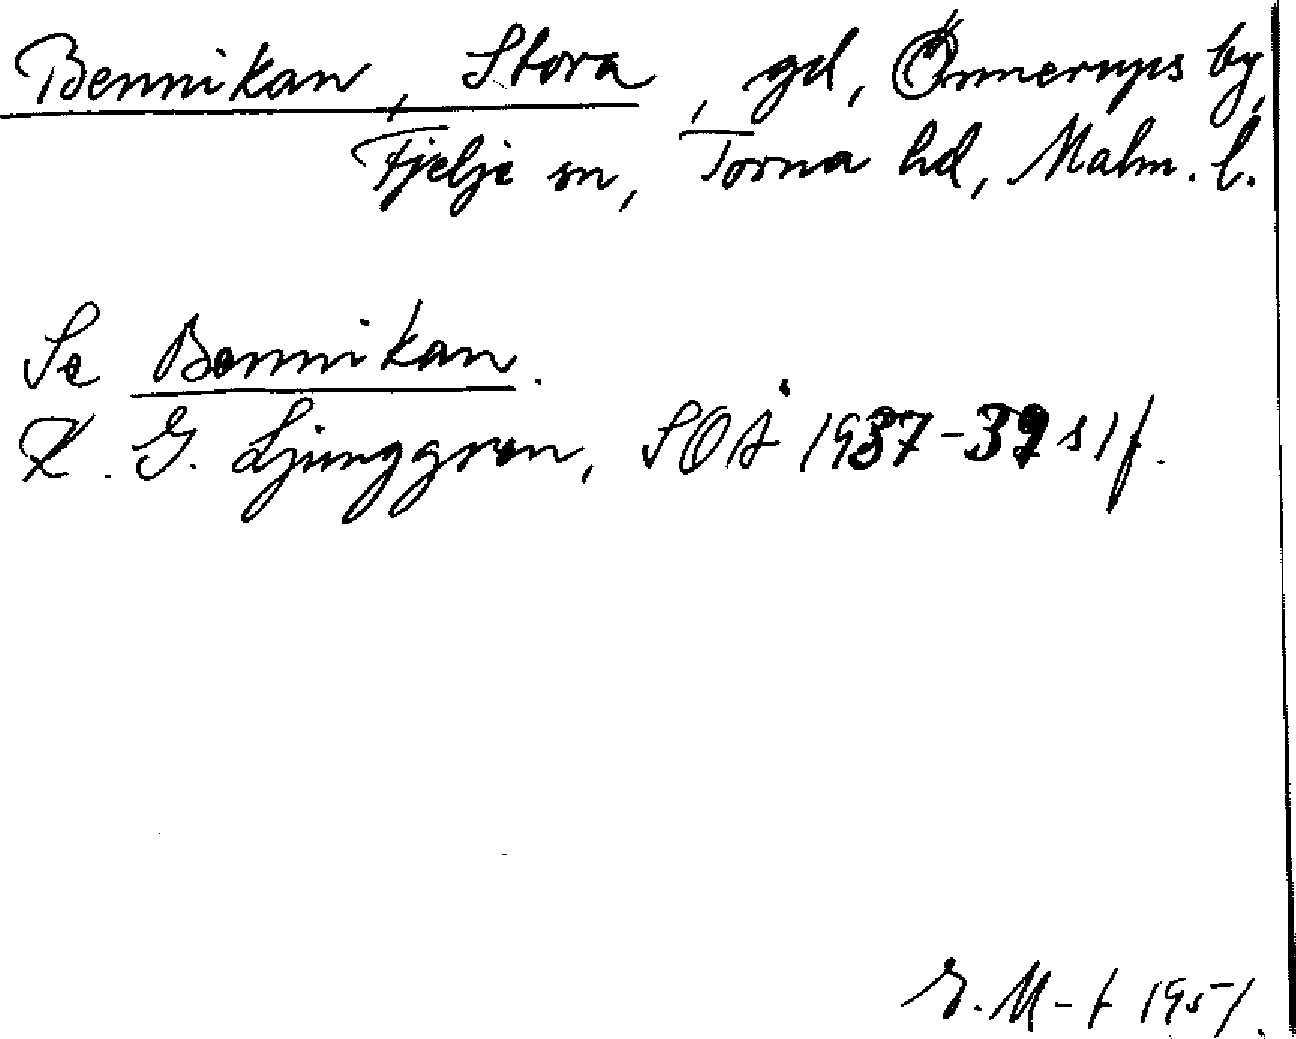 Bennikan, Stora, gd, Önnerups by,
Fjelje sn, Torna hd, Malm. l.
Se Bennikan.
K. G. Ljunggren, SOÅ 1937-39 s 1 f.
E. M-t 1951.